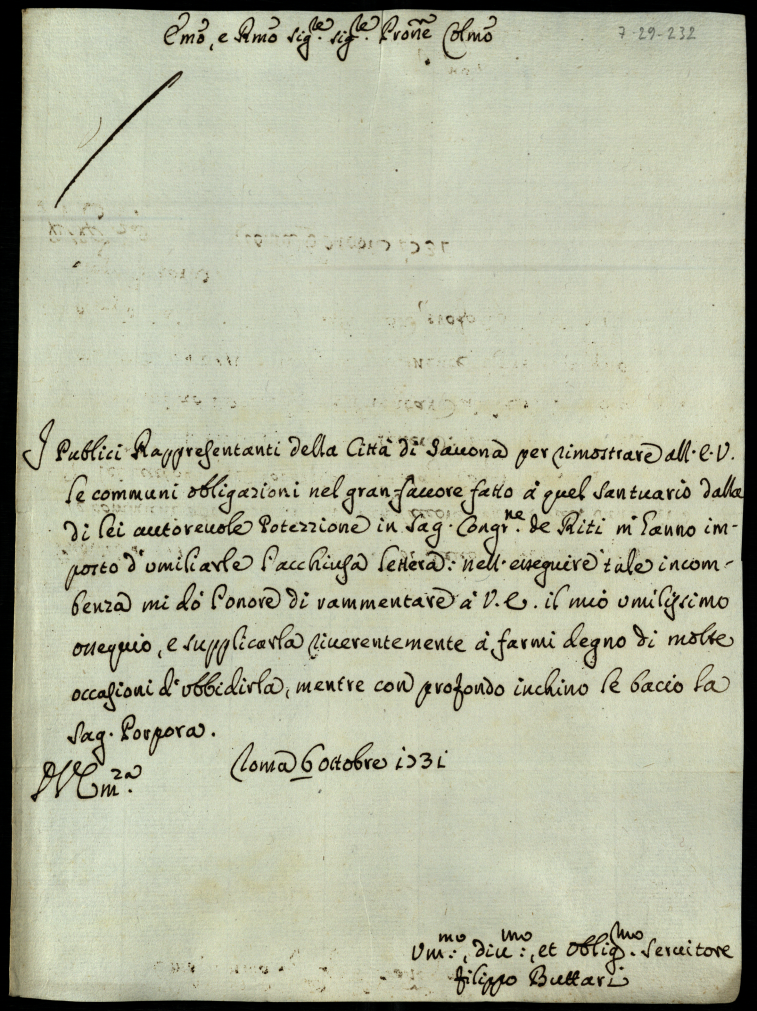 Emo, e Rmo Sig.re Sig.re Prone Colmo
7-29-232
I Publici Rappresentanti della Città di Sauona per rimostrare all. E. V.
le communi obligazioni nel gran fauore fatto à quel Santuario dalla
di lei autoreuole Potezzione in Sag. Congr.ne de Riti m'hanno im-
posto d'umiliarle l'acchiusa lettera: nell'esseguire tale incom-
benza mi dò l'onore di rammentare à V. E. il mio umilissimo
ossequio, e supplicarla riuerentemente à farmi degno di molte
occasioni d'ubbidirla, mentre con profondo inchino le bacio la
Sag. Porpora.
Roma 6 ottobre 1731
D V Em.za
Um.mo, diu.mo, et oblig.mo Seruitore
Filippo Buttari